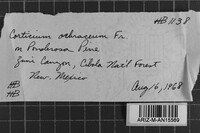 HB 1138
Corticium ochraceum Fr.
on Ponderosa Pine
Zuni Canyon, Cibola Nat'l Forest
New Mexico
HB
HB
Aug 16, 1968
ARIZ-M-AN15569